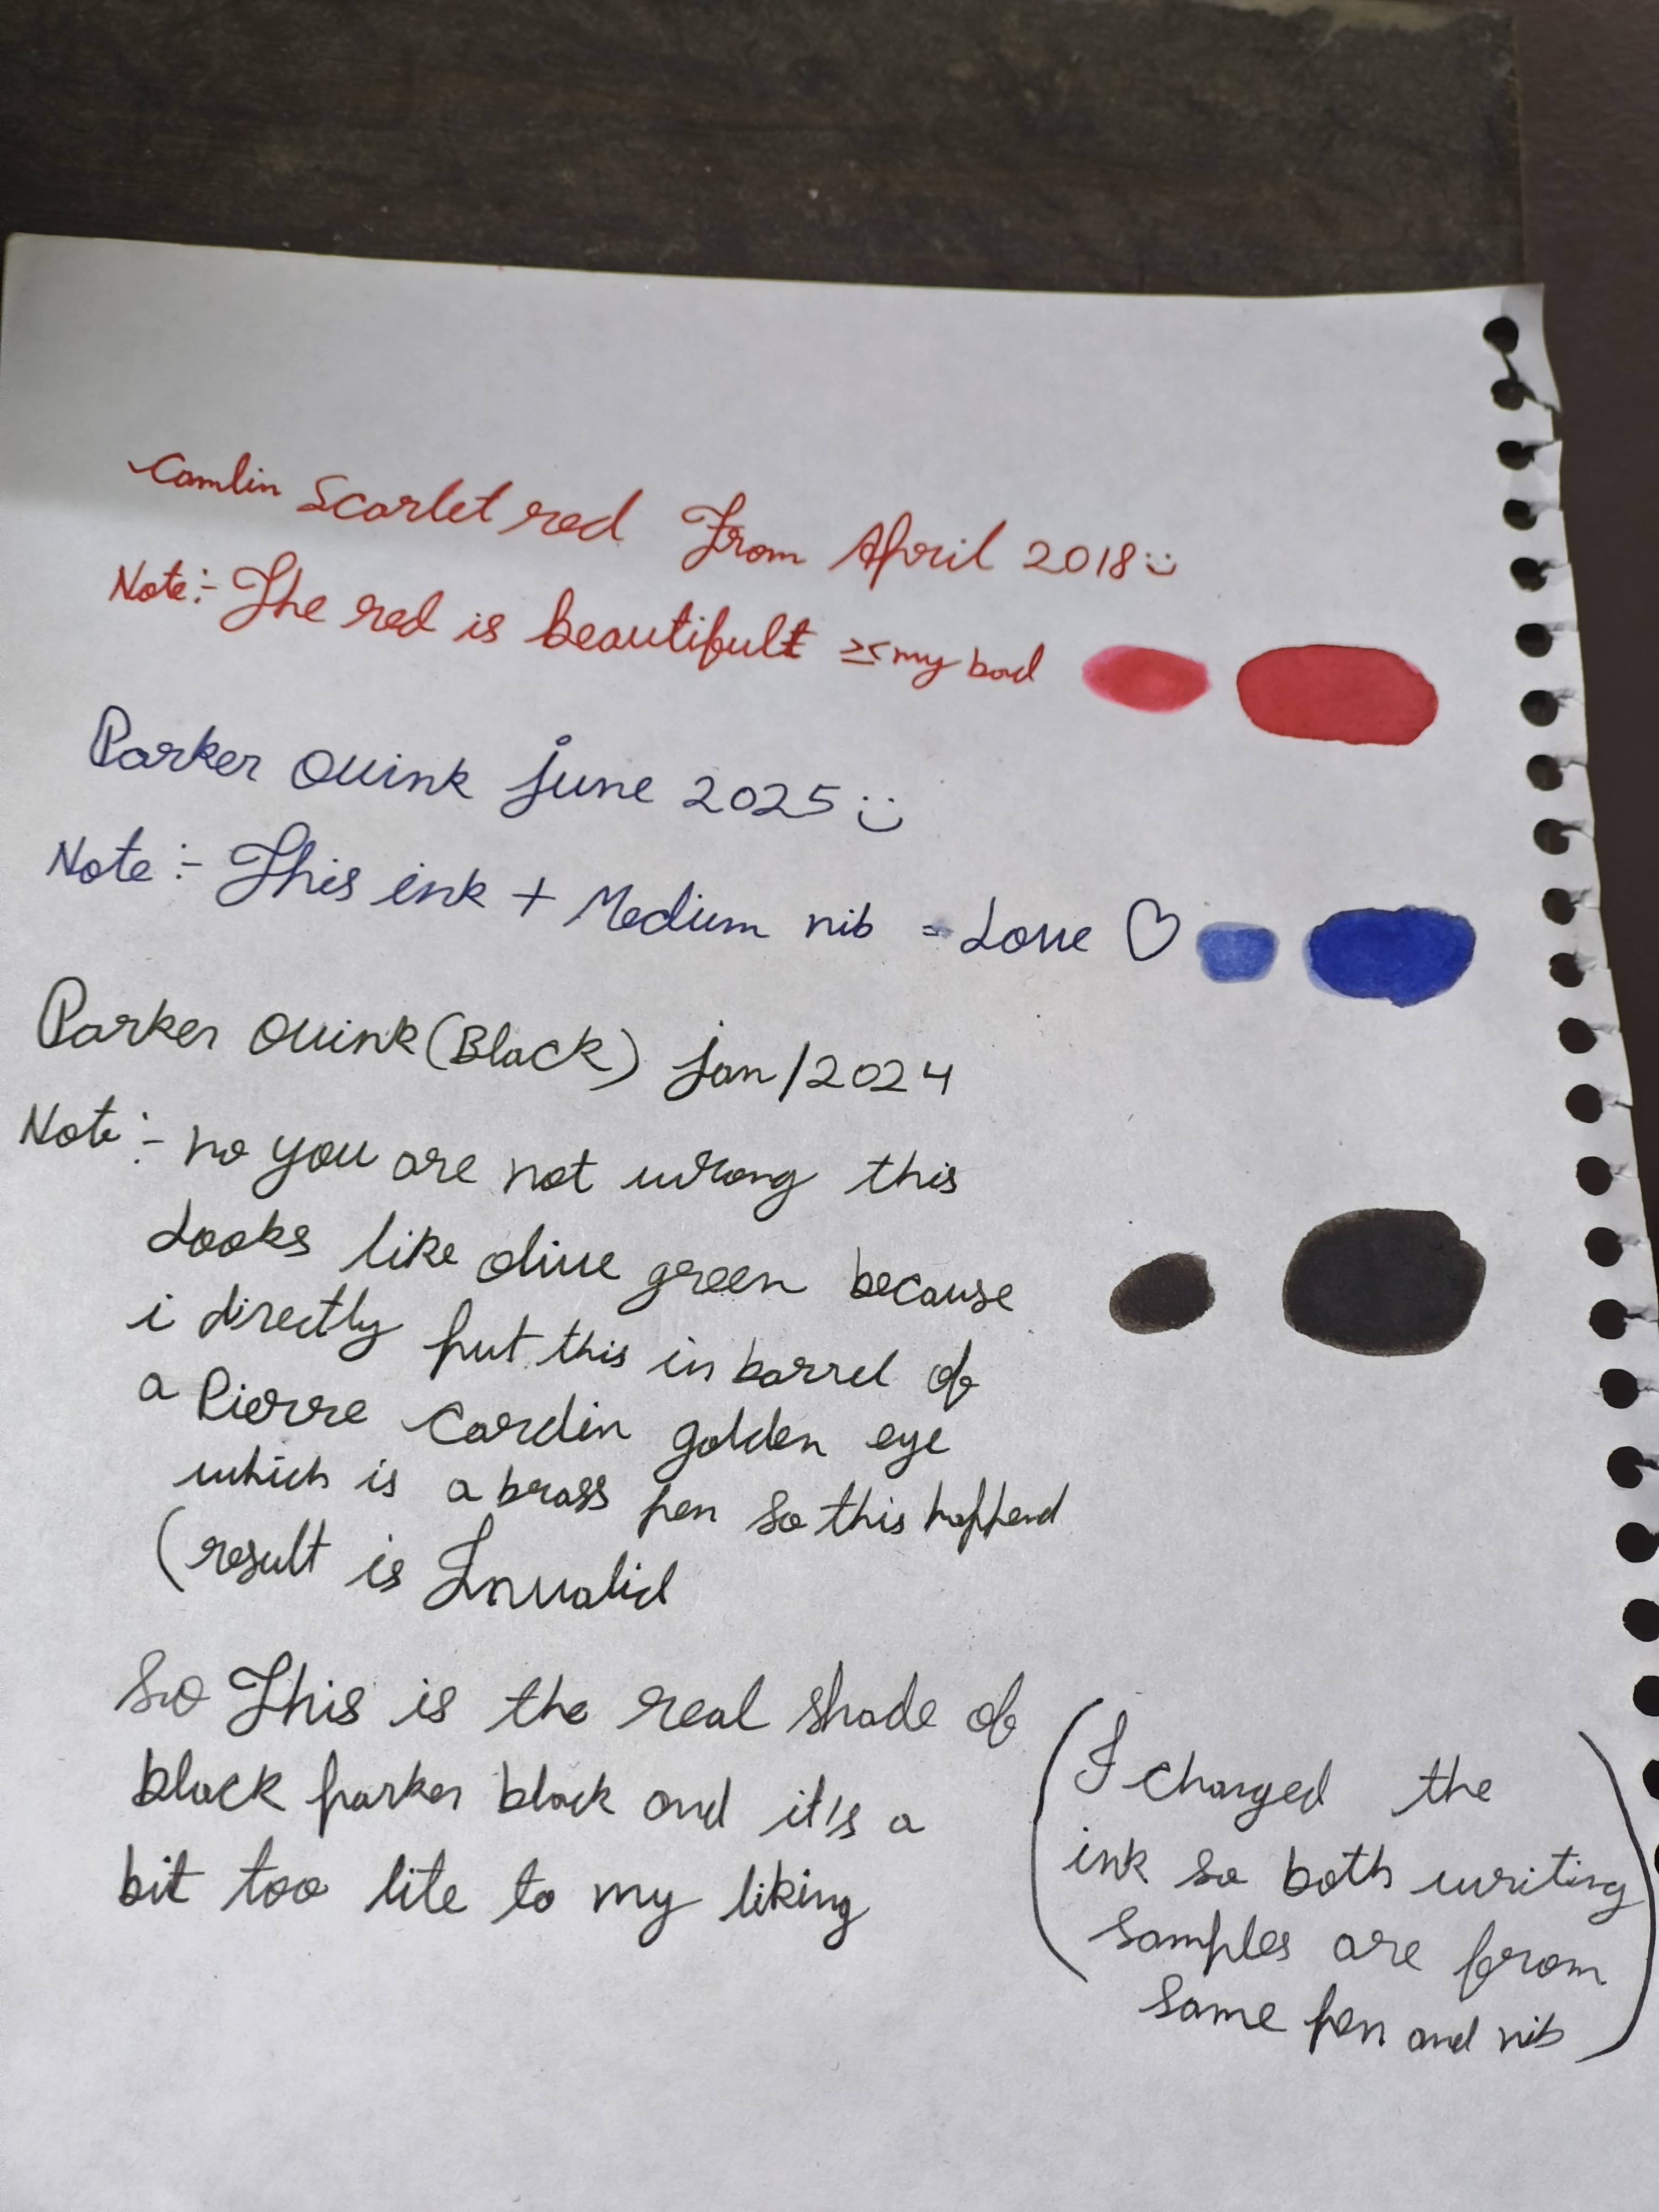 Camlin Scarlet red From April 2018 :)
Note:- The red is beautiful >< my bad
Parker Quink june 2025 :)
Note :- This ink + Medium nib = Love ♡
Parker Quink (Black) jan/2024
Note :- no you are not wrong this
Looks like olive green because
i directly put this in barrel of
a Pierre Cardin golden eye
which is a brass pen so this happend
(result is Invalid
So This is the real shade of
black parker black and it's a
bit too lite to my liking
(I changed the
ink so both writing
samples are from
same pen and nib)